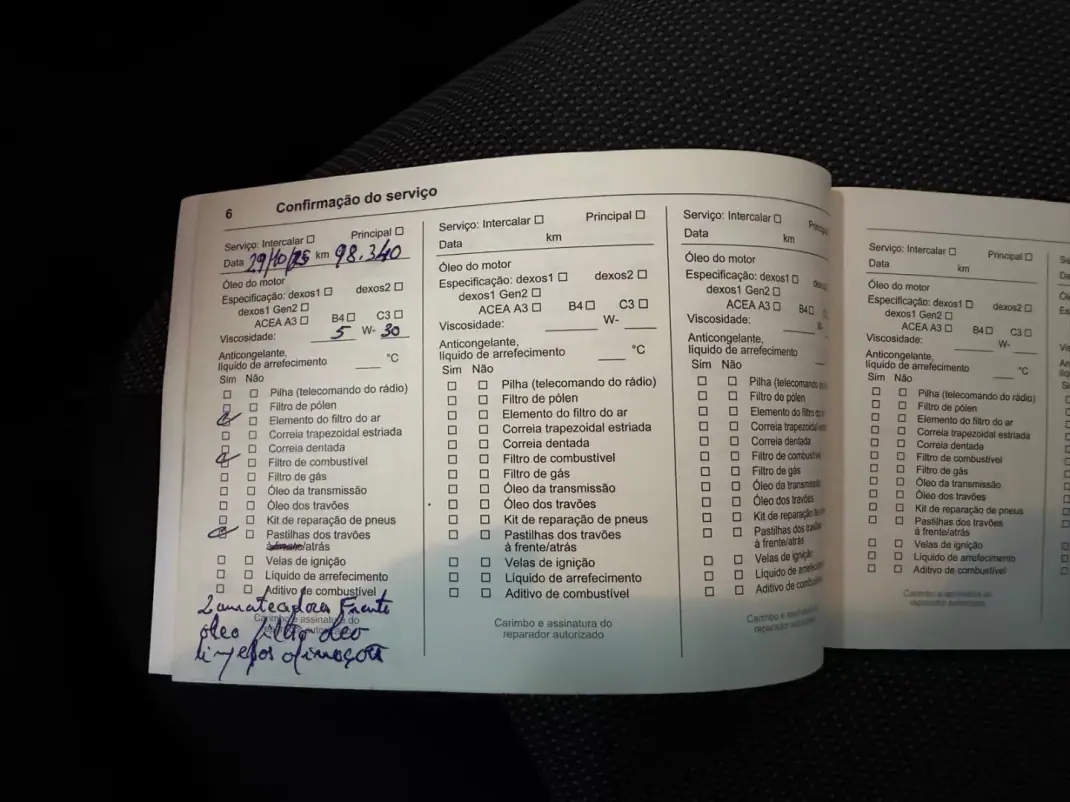 6 Confirmação do serviço
Serviço: Intercalar □ Principal □
Data 29/10/25 km 98.340
Óleo do motor
Especificação: dexos1 □ dexos2 □
dexos1 Gen2 □
ACEA A3 □ B4 □ C3 □
Viscosidade: 5 W- 30
Anticongelante,
líquido de arrefecimento ____ °C
Sim Não
□ □ Pilha (telecomando do rádio)
□ □ Filtro de pólen
□ □ Elemento do filtro do ar
□ □ Correia trapezoidal estriada
□ □ Correia dentada
□ □ Filtro de combustível
□ □ Filtro de gás
□ □ Óleo da transmissão
□ □ Óleo dos travões
□ □ Kit de reparação de pneus
□ □ Pastilhas dos travões
/atrás
□ □ Velas de ignição
□ □ Líquido de arrefecimento
□ □ Aditivo de combustível
2 Frente
Carimbo e assinatura do
óleo
Serviço: Intercalar □ Principal □
Data km
Óleo do motor
Especificação: dexos1 □ dexos2 □
dexos1 Gen2 □
ACEA A3 □ B4 □ C3 □
Viscosidade: ____ W- ____
Anticongelante,
líquido de arrefecimento ____ °C
Sim Não
□ □ Pilha (telecomando do rádio)
□ □ Filtro de pólen
□ □ Elemento do filtro do ar
□ □ Correia trapezoidal estriada
□ □ Correia dentada
□ □ Filtro de combustível
□ □ Filtro de gás
□ □ Óleo da transmissão
□ □ Óleo dos travões
□ □ Kit de reparação de pneus
□ □ Pastilhas dos travões
à frente/atrás
□ □ Velas de ignição
□ □ Líquido de arrefecimento
□ □ Aditivo de combustível
Carimbo e assinatura do
reparador autorizado
Serviço: Intercalar □
Data km
Óleo do motor
Especificação: dexos1 □
dexos1 Gen2 □
ACEA A3 □ B4 □
Viscosidade:
Anticongelante,
líquido de arrefecimento
Sim Não
□ □ Pilha (telecomando do
□ □ Filtro de pólen
□ □ Elemento do filtro do
□ □ Correia trapezoidal
□ □ Correia dentada
□ □ Filtro de combustível
□ □ Filtro de gás
□ □ Óleo da transmissão
□ □ Óleo dos travões
□ □ Kit de reparação
□ □ Pastilhas dos travões
à frente/atrás
□ □ Velas de ignição
□ □ Líquido de
□ □ Aditivo de
Carimbo e assinatura do
reparador autorizado
Serviço: Intercalar □ Principal □
Data km
Óleo do motor
Especificação: dexos1 □ dexos2 □
dexos1 Gen2 □
ACEA A3 □ B4 □ C3 □
Viscosidade: ____ W- ____
Anticongelante,
líquido de arrefecimento ____ °C
Sim Não
□ □ Pilha (telecomando do rádio)
□ □ Filtro de pólen
□ □ Elemento do filtro do ar
□ □ Correia trapezoidal estriada
□ □ Correia dentada
□ □ Filtro de combustível
□ □ Filtro de gás
□ □ Óleo da transmissão
□ □ Óleo dos travões
□ □ Kit de reparação de pneus
□ □ Pastilhas dos travões
à frente/atrás
□ □ Velas de ignição
□ □ Líquido de arrefecimento
□ □ Aditivo de combustível
Carimbo e assinatura do
reparador autorizado